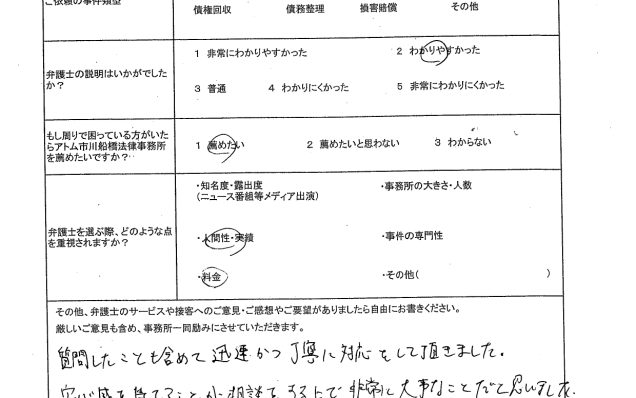 ご依頼の事件類型
債権回収 債務整理 損害賠償 その他
弁護士の説明はいかがでしたか？
1 非常にわかりやすかった 2 わかりやすかった
3 普通 4 わかりにくかった 5 非常にわかりにくかった
もし周りで困っている方がいたらアトム市川船橋法律事務所を薦めたいですか？
1 薦めたい 2 薦めたいと思わない 3 わからない
弁護士を選ぶ際、どのような点を重視されますか？
・知名度・露出度 ・事務所の大きさ・人数
(ニュース番組等メディア出演)
・人間性・実績 ・事件の専門性
・料金 ・その他( )
その他、弁護士のサービスや接客へのご意見・ご感想やご要望がありましたら自由にお書きください。
厳しいご意見も含め、事務所一同励みにさせていただきます。
質問したことも含めて迅速かつ丁寧に対応をして頂きました。
安心感を持てることが相談をする上で非常に大事なことだと思いました。